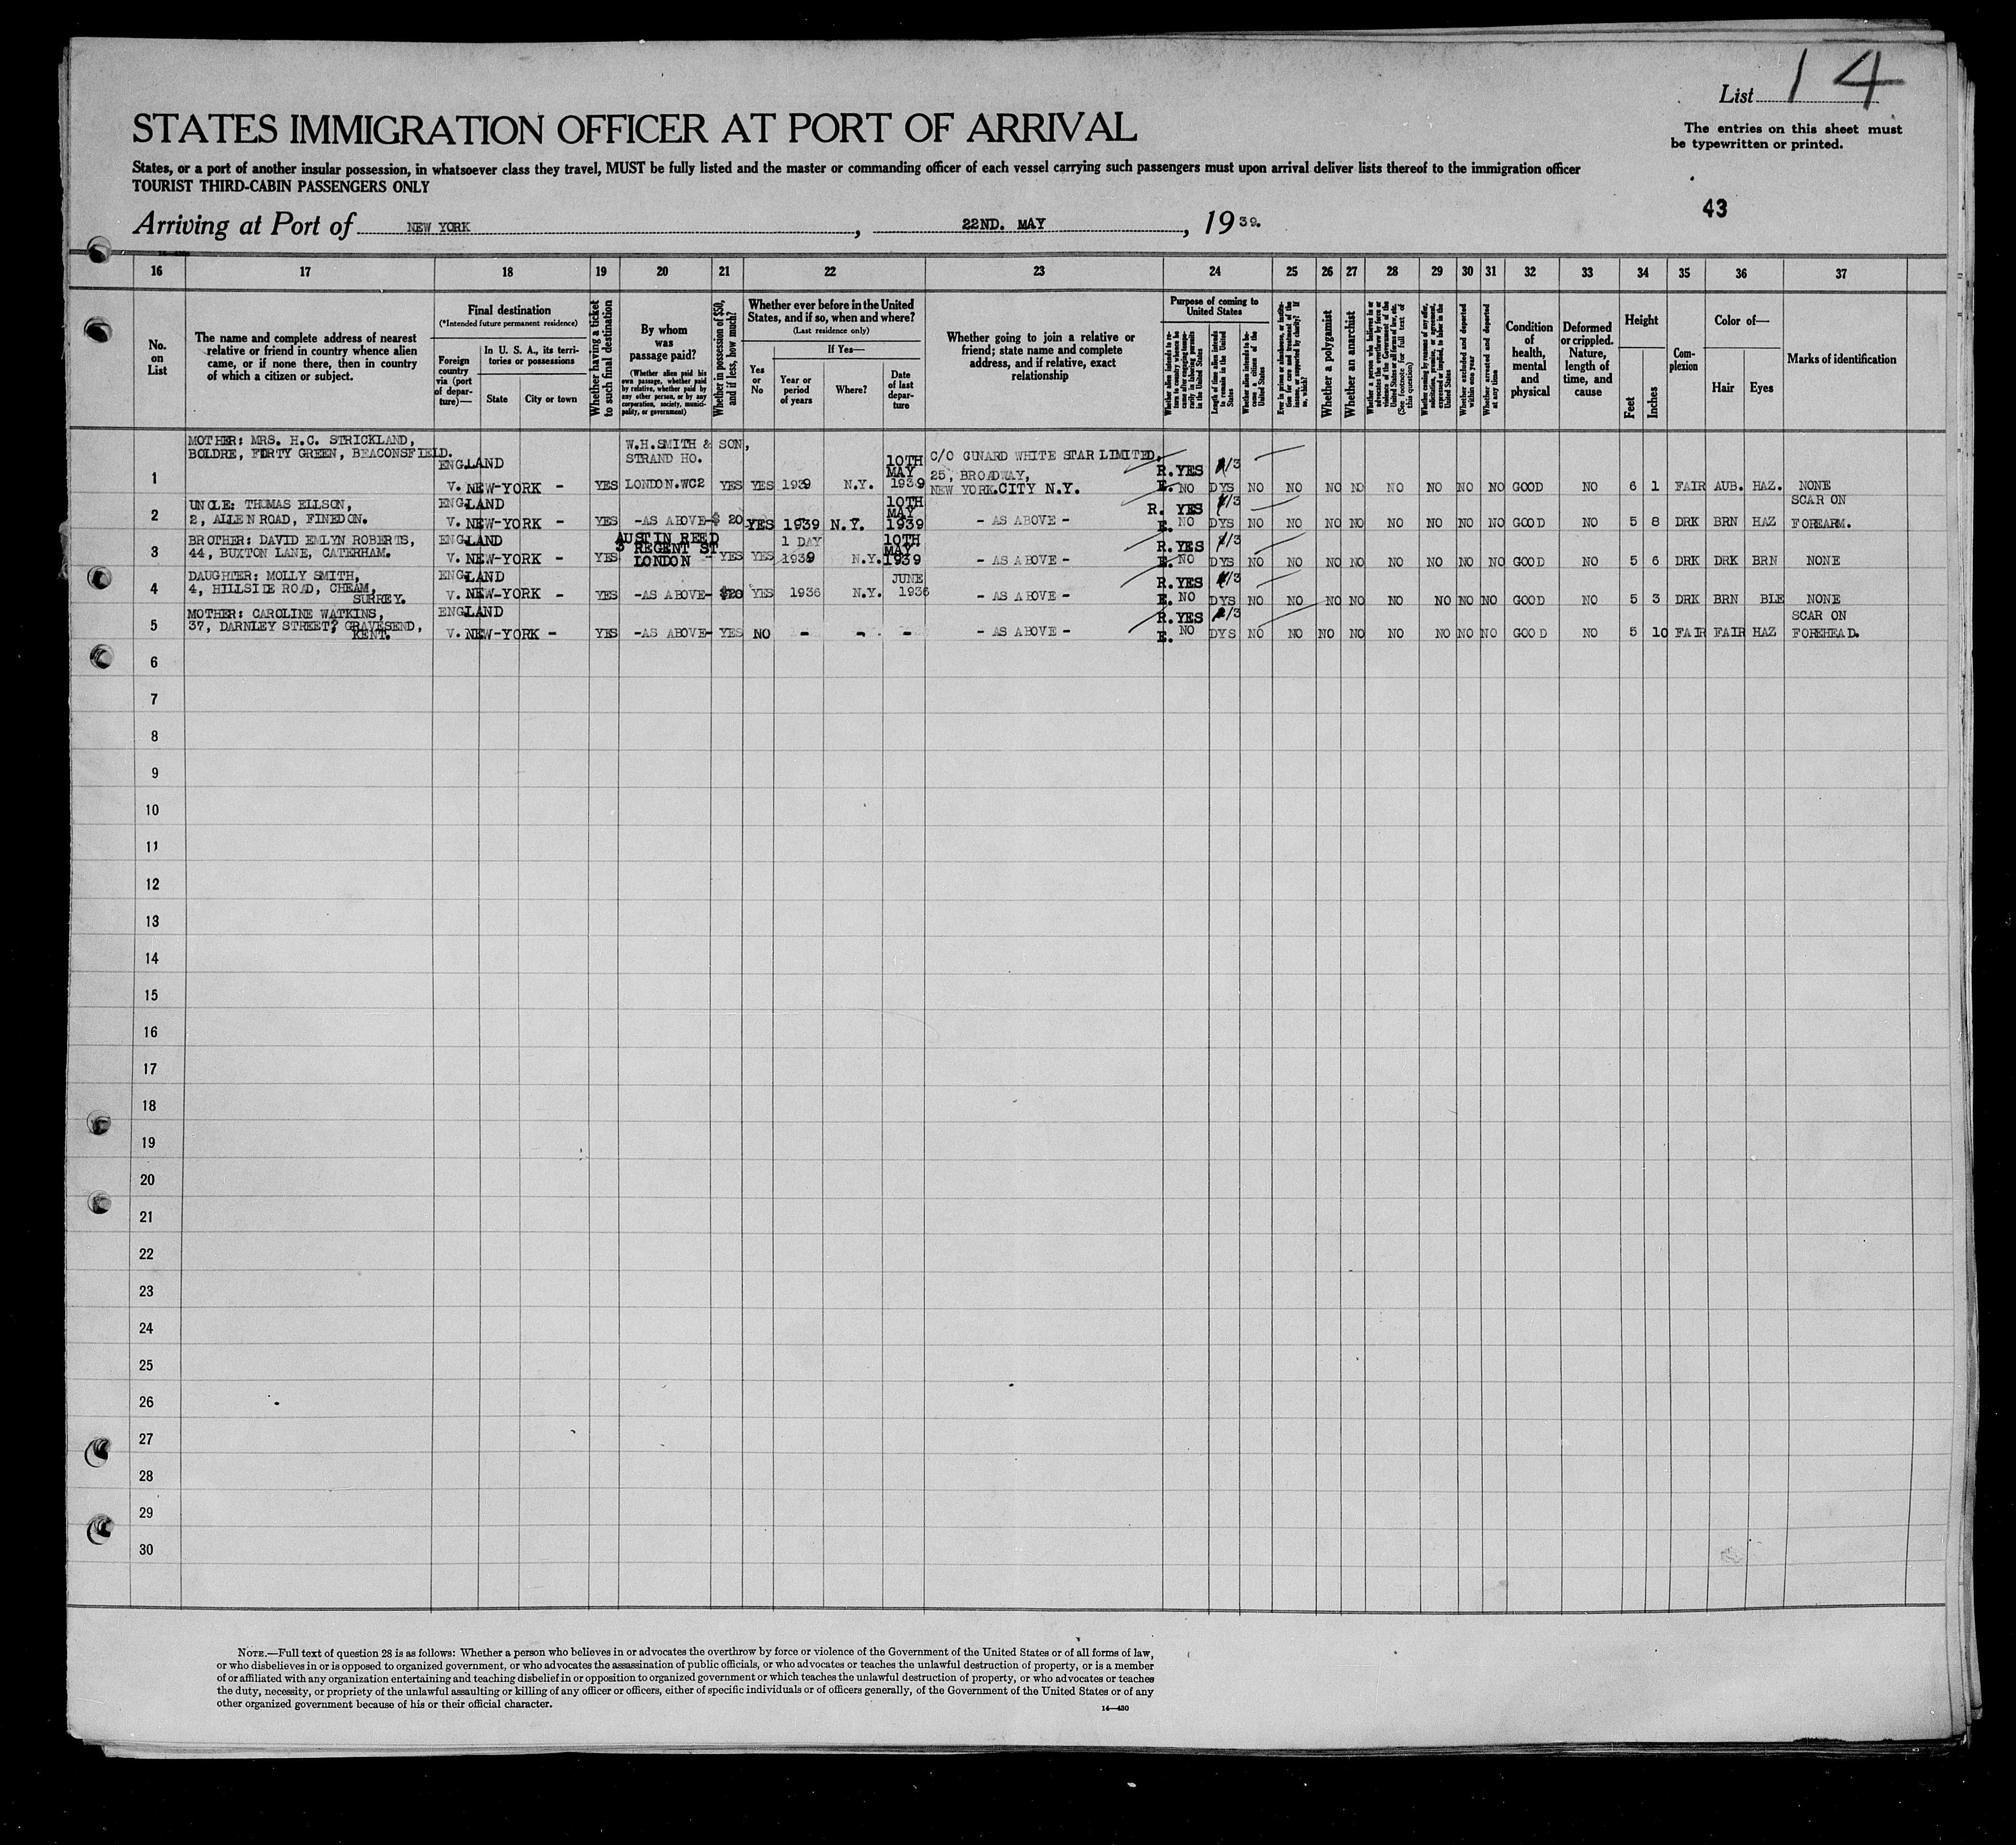 List 14
STATES IMMIGRATION OFFICER AT PORT OF ARRIVAL
The entries on this sheet must
be typewritten or printed.
States, or a port of another insular possession, in whatsoever class they travel, MUST be fully listed and the master or commanding officer of each vessel carrying such passengers must upon arrival deliver lists thereof to the immigration officer
TOURIST THIRD-CABIN PASSENGERS ONLY
43
Arriving at Port of NEW YORK, 22ND. MAY, 1939.
16 17 18 19 20 21 22 23 24 25 26 27 28 29 30 31 32 33 34 35 36 37
No.
on
List
The name and complete address of nearest
relative or friend in country whence alien
came, or if none there, then in country
of which a citizen or subject.
Final destination
(*Intended future permanent residence)
Foreign
country
via (port
of depar-
ture)—
In U. S. A., its terri-
tories or possessions
State
City or town
Whether having a ticket
to such final destination
By whom
was
passage paid?
(Whether alien paid his
own passage, whether paid
by relative, whether paid by
any other person, or by any
corporation, society, munici-
pality, or government)
Whether in possession of $50,
and if less, how much?
Whether ever before in the United
States, and if so, when and where?
(Last residence only)
Yes
or
No
If Yes—
Year or
period
of years
Where?
Date
of last
depar-
ture
Whether going to join a relative or
friend; state name and complete
address, and if relative, exact
relationship
Purpose of coming to
United States
Whether alien intends to re-
turn to country whence he
came after engaging tempo-
rarily in laboring pursuits
in the United States
Length of time alien intends
to remain in the United
States
Whether alien intends to be-
come a citizen of the
United States
Ever in prison or almshouse, or institu-
tion for care and treatment of the
insane, or supported by charity? If
so, which?
Whether a polygamist
Whether an anarchist
Whether a person who believes in or
advocates the overthrow by force or
violence of the Government of the
United States or all forms of law, etc.
(See footnote for full text of
this question)
Whether coming by reason of any offer,
solicitation, promise, or agreement,
expressed or implied, to labor in the
United States
Whether excluded and deported
within one year
Whether arrested and deported
at any time
Condition
of
health,
mental
and
physical
Deformed
or crippled.
Nature,
length of
time, and
cause
Height
Feet
Inches
Com-
plexion
Color of—
Hair
Eyes
Marks of identification
MOTHER: MRS. H.C. STRICKLAND, W.H.SMITH & SON,
BOLDRE, FORTY GREEN, BEACONSFIELD. STRAND HO. 10TH C/O CUNARD WHITE STAR LIMITED,
ENGLAND MAY 25, BROADWAY, R.YES 1/3
1 V. NEW-YORK - YES LONDON.WC2 YES YES 1939 N.Y. 1939 NEW YORK.CITY N.Y. E. NO DYS NO NO NO NO NO NO NO NO GOOD NO 6 1 FAIR AUB. HAZ. NONE
UNCLE: THOMAS ELLSON, ENGLAND 10TH MAY R. YES 1/3 SCAR ON
2 2, ALLEN ROAD, FINEDON. V. NEW-YORK - YES -AS ABOVE- $ 20 YES 1939 N.Y. 1939 - AS ABOVE - E. NO DYS NO NO NO NO NO NO NO NO GOOD NO 5 8 DRK BRN HAZ FOREARM.
BROTHER: DAVID EMLYN ROBERTS, ENGLAND AUSTIN REED 1 DAY 10TH R.YES 1/3
3 44, BUXTON LANE, CATERHAM. V. NEW-YORK - YES 3 REGENT ST LONDON - YES YES 1939 N.Y. MAY 1939 - AS ABOVE - E. NO DYS NO NO NO NO NO NO NO NO GOOD NO 5 6 DRK DRK BRN NONE
DAUGHTER: MOLLY SMITH, ENGLAND JUNE R.YES 1/3
4 4, HILLSIDE ROAD, CHEAM, SURREY. V. NEW-YORK - YES -AS ABOVE- $20 YES 1936 N.Y. 1936 - AS ABOVE - E. NO DYS NO NO NO NO NO NO NO NO GOOD NO 5 3 DRK BRN BLE NONE
MOTHER: CAROLINE WATKINS, ENGLAND R.YES 1/3 SCAR ON
5 37, DARNLEY STREET, GRAVESEND, KENT. V. NEW-YORK - YES -AS ABOVE- YES NO - - - - AS ABOVE - E. NO DYS NO NO NO NO NO NO NO NO GOOD NO 5 10 FAIR FAIR HAZ FOREHEAD.
6
7
8
9
10
11
12
13
14
15
16
17
18
19
20
21
22
23
24
25
26
27
28
29
30
NOTE.—Full text of question 28 is as follows: Whether a person who believes in or advocates the overthrow by force or violence of the Government of the United States or of all forms of law,
or who disbelieves in or is opposed to organized government, or who advocates the assassination of public officials, or who advocates or teaches the unlawful destruction of property, or is a member
of or affiliated with any organization entertaining and teaching disbelief in or opposition to organized government or which teaches the unlawful destruction of property, or who advocates or teaches
the duty, necessity, or propriety of the unlawful assaulting or killing of any officer or officers, either of specific individuals or of officers generally, of the Government of the United States or of any
other organized government because of his or their official character.
14—430